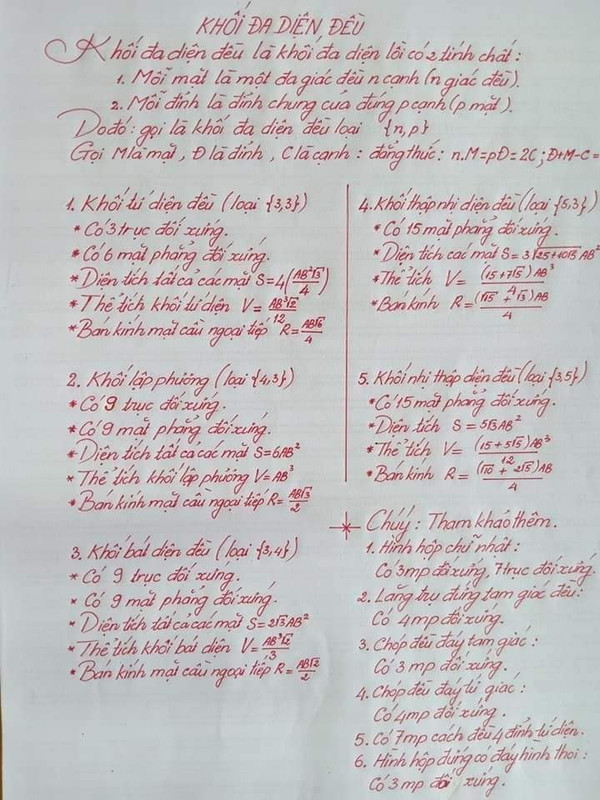 KHỐI ĐA DIỆN ĐỀU
Khối đa diện đều là khối đa diện lồi có 2 tính chất:
1. Mỗi mặt là một đa giác đều n cạnh (n giác đều).
2. Mỗi đỉnh là đỉnh chung của đúng p cạnh (p mặt).
Do đó: gọi là khối đa diện đều loại {n,p}
Gọi M là mặt, Đ là đỉnh, C là cạnh: đẳng thức: n.M=pĐ=2C; Đ+M-C=
1. Khối tứ diện đều (loại {3,3})
* Có 3 trục đối xứng.
* Có 6 mặt phẳng đối xứng.
* Diện tích tất cả các mặt S=4(AB²√3/4)
* Thể tích khối tứ diện V=AB³√2/12
* Bán kính mặt cầu ngoại tiếp R=AB√6/4
2. Khối lập phương (loại {4,3})
* Có 9 trục đối xứng.
* Có 9 mặt phẳng đối xứng.
* Diện tích tất cả các mặt S=6AB²
* Thể tích khối lập phương V=AB³
* Bán kính mặt cầu ngoại tiếp R=AB√3/2
3. Khối bát diện đều (loại {3,4})
* Có 9 trục đối xứng.
* Có 9 mặt phẳng đối xứng.
* Diện tích tất cả các mặt S=2√3AB²
* Thể tích khối bát diện V=AB³√2/3
* Bán kính mặt cầu ngoại tiếp R=AB√2/2
4. Khối thập nhị diện đều (loại {5,3})
* Có 15 mặt phẳng đối xứng.
* Diện tích các mặt S=3√(25+10√5)AB²
* Thể tích V=(15+7√5)AB³/4
* Bán kính R=(√15+√3)AB/4
5. Khối nhị thập diện đều (loại {3,5})
* Có 15 mặt phẳng đối xứng.
* Diện tích S=5√3AB²
* Thể tích V=(15+5√5)AB³/12
* Bán kính R=(√10+2√5)AB/4
Chú ý: Tham khảo thêm.
1. Hình hộp chữ nhật:
Có 3mp đối xứng, 7 trục đối xứng.
2. Lăng trụ đứng tam giác đều:
Có 4mp đối xứng.
3. Chóp đều đáy tam giác:
Có 3 mp đối xứng.
4. Chóp đều đáy tứ giác:
Có 4mp đối xứng.
5. Có 7mp cách đều 4 đỉnh tứ diện.
6. Hình hộp đứng có đáy hình thoi:
Có 3 mp đối xứng.